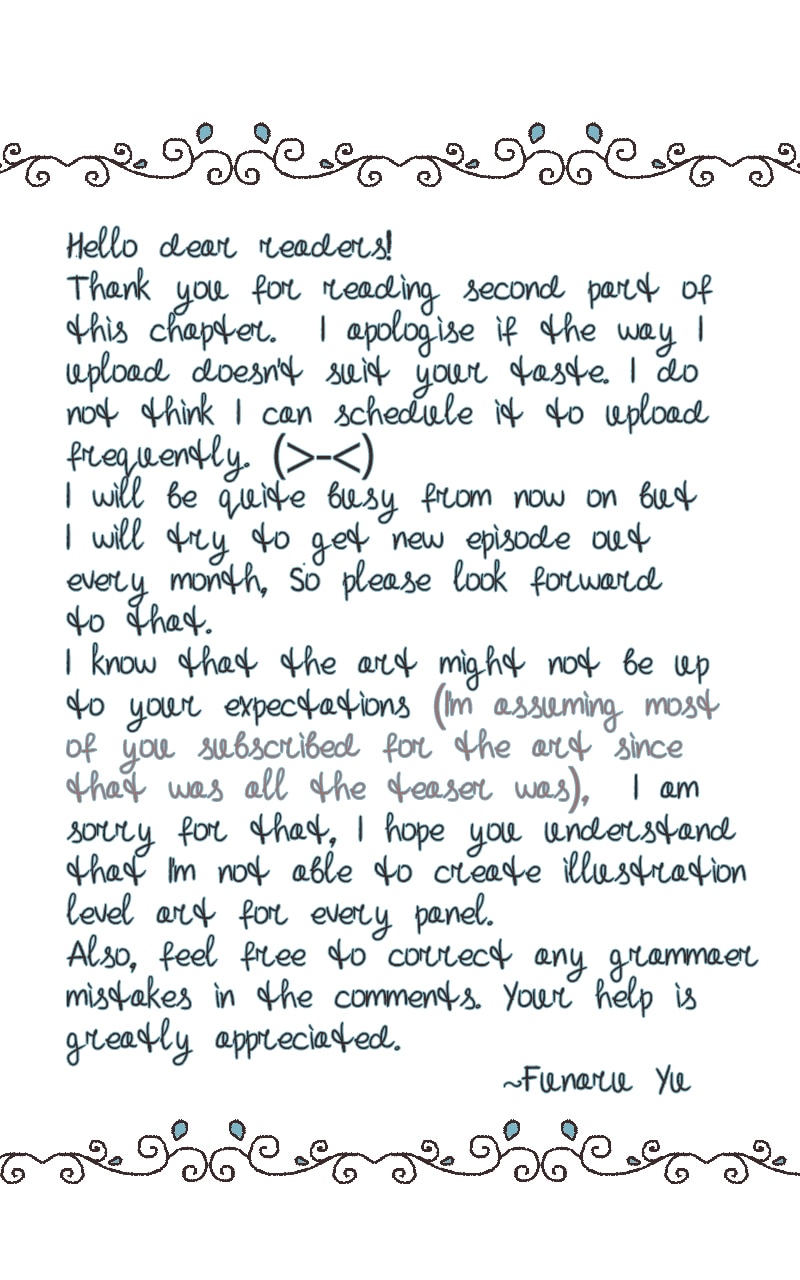 Hello dear readers!
Thank you for reading second part of
this chapter. I apologise if the way I
upload doesn't suit your taste. I do
not think I can schedule it to upload
frequently. (>-<)
I will be quite busy from now on but
I will try to get new episode out
every month, So please look forward
to that.
I know that the art might not be up
to your expectations (Im assuming most
of you subscribed for the art since
that was all the teaser was), I am
sorry for that, I hope you understand
that Im not able to create illustration
level art for every panel.
Also, feel free to correct any grammaer
mistakes in the comments. Your help is
greatly appreciated.
~Funaru Yu